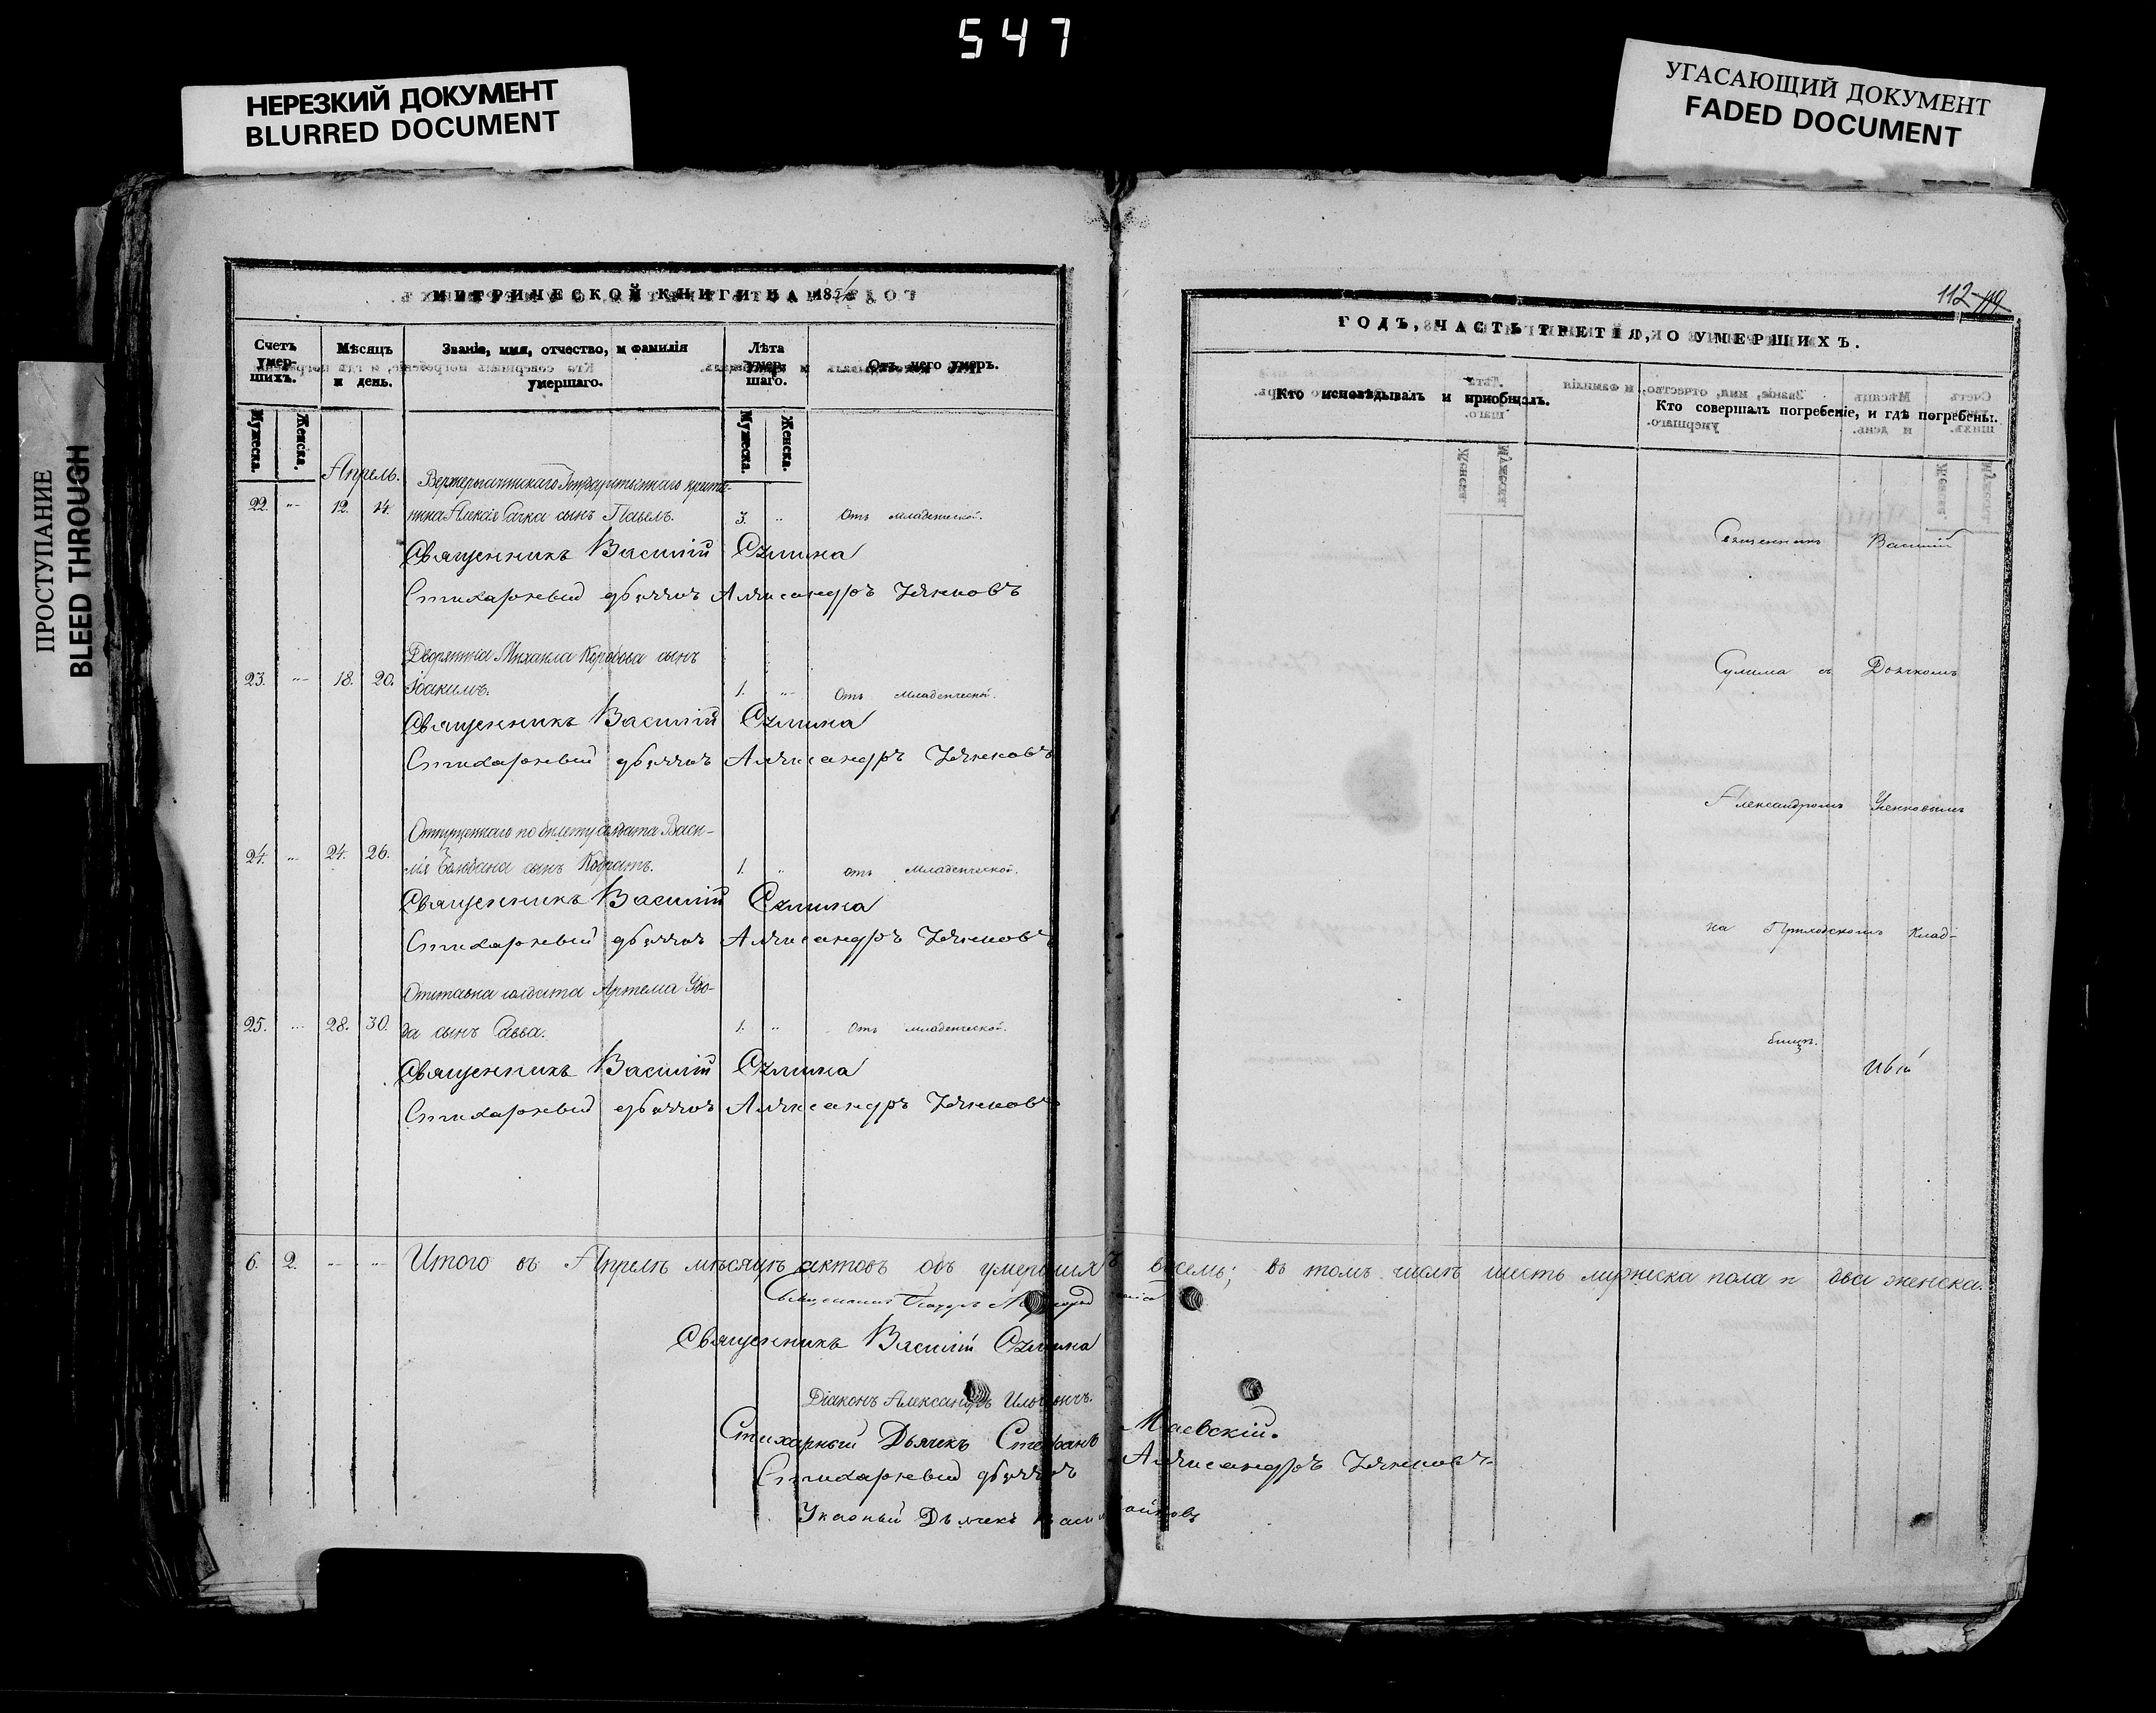 547
НЕРЕЗКИЙ ДОКУМЕНТ
BLURRED DOCUMENT
УГАСАЮЩИЙ ДОКУМЕНТ
FADED DOCUMENT
ПРОСТУПАНИЕ
BLEED THROUGH
МЕТРИЧЕСКОЙ КНИГИ НА 185
Счетъ умер-шихъ.
Мужеска.
Женска.
Мѣсяцъ и день.
Званіе, имя, отчество, и фамилія умершаго.
Лѣта умер-шаго.
Мужеска.
Женска.
Отъ чего умеръ.
Апрель.
22. 12. 14. нина Алексія сынъ Павелъ. 3. Отъ младенческой.
Священникъ Василій Сулима
Стихарный дьячокъ Александръ
Дворянина Михаила Коробова сынъ
23. 18. 20. Іоакимъ. 1. Отъ младенческой.
Священникъ Василій Сулима
Стихарный дьячокъ Александръ
Отпущеннаго по билету солдата Васи-
24. 24. 26. лія сынъ Кодратъ. 1. отъ младенческой.
Священникъ Василій Сулима
Стихарный дьячокъ Александръ
солдата Артема
25. 28. 30. сынъ Савва. 1. Отъ младенческой.
Священникъ Василій Сулима
Стихарный дьячокъ Александръ
112 119
ГОДЪ, ЧАСТЬ ТРЕТІЯ, О УМЕРШИХЪ.
Кто исповѣдывалъ и приобщалъ.
Кто совершалъ погребеніе, и гдѣ погребены.
Священникъ Василій
Сулима съ Дьячкомъ
Александромъ
на Приходскомъ Клад-
бищѣ.
6. 2. Итого въ Апрелѣ мѣсяцѣ актовъ объ умершихъ восемь; въ томъ числѣ шесть мужеска пола и два женска.
Священникъ
Священникъ Василій Сулима
Діаконъ Александръ
Стихарный Дьячекъ Стефанъ Маевскій.
Стихарный дьячокъ Александръ
Указный Дьячекъ